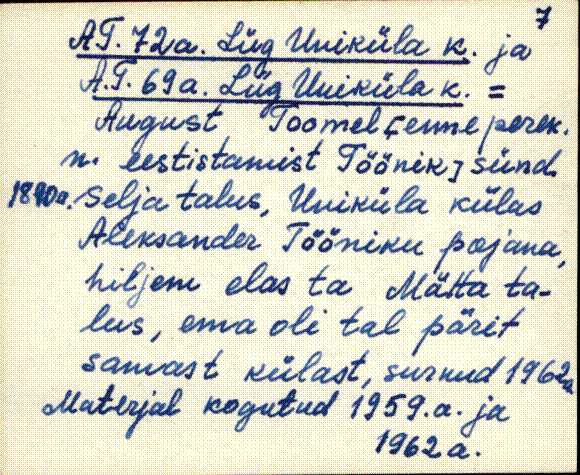 7
A.T. 72a. Lüg Uniküla k. ja
A.T. 69a. Lüg Uniküla k. =
August Toomel [enne perek.
n. eestistamist Tööník] sünd.
1890a. Selja talus, Uniküla külas
Aleksander Tööniku pojana,
hiljem elas ta Mätta ta-
lus, ema oli tal pärit
samast külast, surnud 1962a
Materjal kogutud 1959.a. ja
1962 a.